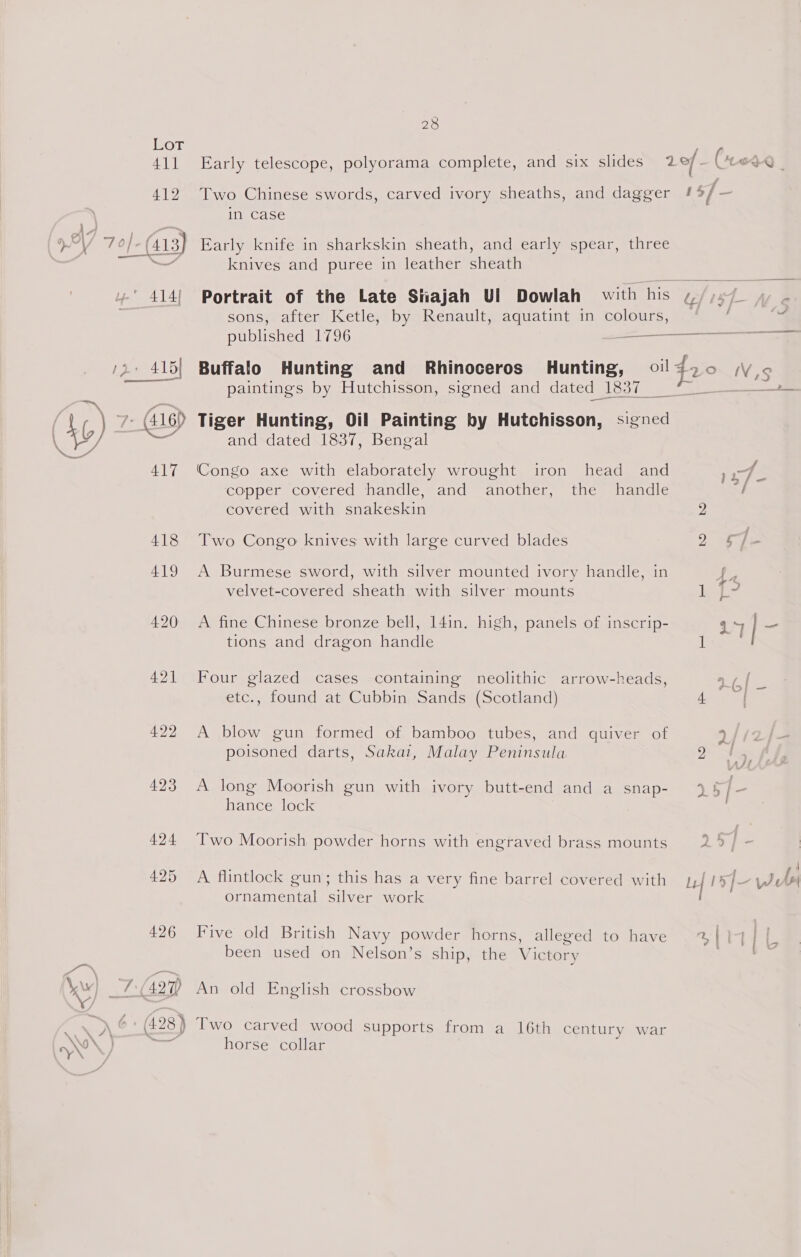 28
LOT
411 Early telescope, polyorama complete, and six slides
412 Two Chinese swords, carved ivory sheaths, and dagger 15/-
in case
70/- 413 Early knife in sharkskin sheath, and early spear, three
knives and puree in leather sheath
414 Portrait of the Late Shajah Ul Dowlah with his
sons, after Ketle, by Renault, aquatint in colours,
published 1796
12. 415 Buffalo Hunting and Rhinoceros Hunting, oil £20
paintings by Hutchisson, signed and dated 1837
7. 416 Tiger Hunting, Oil Painting by Hutchisson, signed
and dated 1837, Bengal
417 Congo axe with elaborately wrought iron head and
copper covered handle, and another, the handle
covered with snakeskin 2
418 Two Congo knives with large curved blades 2
419 A Burmese sword, with silver mounted ivory handle, in
velvet-covered sheath with silver mounts 1
420 A fine Chinese bronze bell, 14in. high, panels of inscrip-
tions and dragon handle 1
421 Four glazed cases containing neolithic arrow-heads,
etc., found at Cubbin Sands (Scotland) 4
422 A blow gun formed of bamboo tubes, and quiver of
poisoned darts, Sakai, Malay Peninsula 2
423 A long Moorish gun with ivory butt-end and a snap- 25/-
hance lock
424 Two Moorish powder horns with engraved brass mounts 25/-
425 A flintlock gun; this has a very fine barrel covered with
ornamental silver work
426 Five old British Navy powder horns, alleged to have
been used on Nelson's ship, the Victory
7. 427 An old English crossbow
6. 428 Two carved wood supports from a 16th century war
horse collar